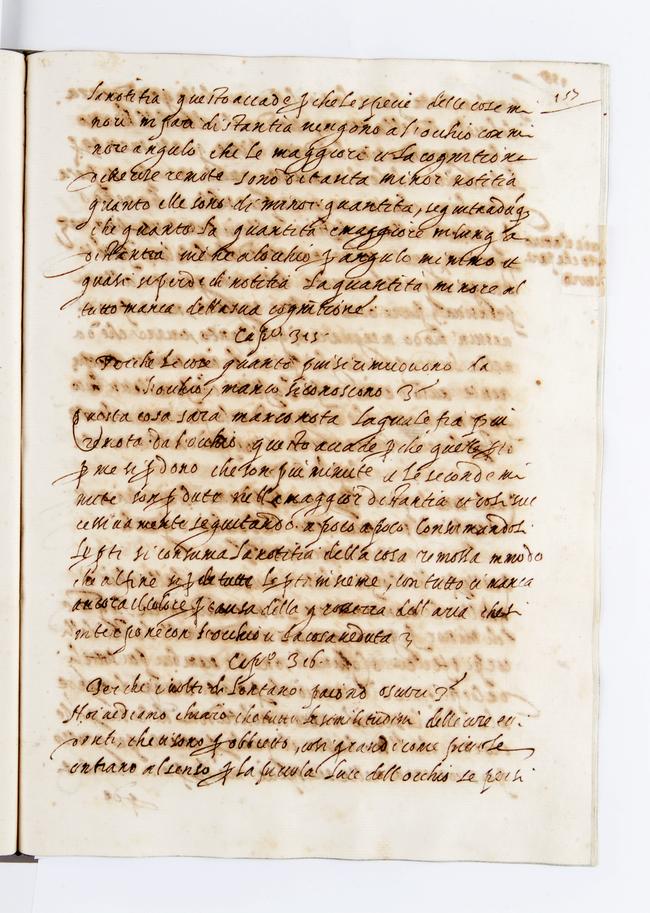 157
la notitia questo accade p che le spetie delle cose mi
nori in pari distantia vengono al occhio con mi
nore angulo che le maggiori et la cognitione
delle cose remote sono di tanta minor notitia
quanto elle sono di minor quantita, seguitando
che quanto la quantita e maggiore in lunga
distantia viene al ochio p angulo minimo et
quasi si perde di notitia la quantita minore al
tutto manca della sua cognitione.
Cap.o 315.
Perche le cose quanto piu si rimuovono da
l'occhio, manco si conoscono
Questa cosa sara manco nota la quale fia piu
remota da l'occhio questo accade p che quelle pti
p me si pdono che son piu minute et le seconde mi
nute son pdute nella maggior distantia et cosi suc
cessivamente seguitando a poco a poco consumandosi
le pti si consuma la notitia della cosa remossa in modo
che al fine si pde tutte le pti insieme, con tutto ci manca
ancora il colore p causa della grossezza dell aria che si
interpone con l'occhio et la cosa veduta
Cap.o 316.
Perche i volti di lontano paiono oscuri
Noi vediamo chiaro che tutte le similitudini delle cose evi
denti, che ci sono p obbietto, cosi grandi come piccole
entrano al senso p la piccola luce dell occhio se per si